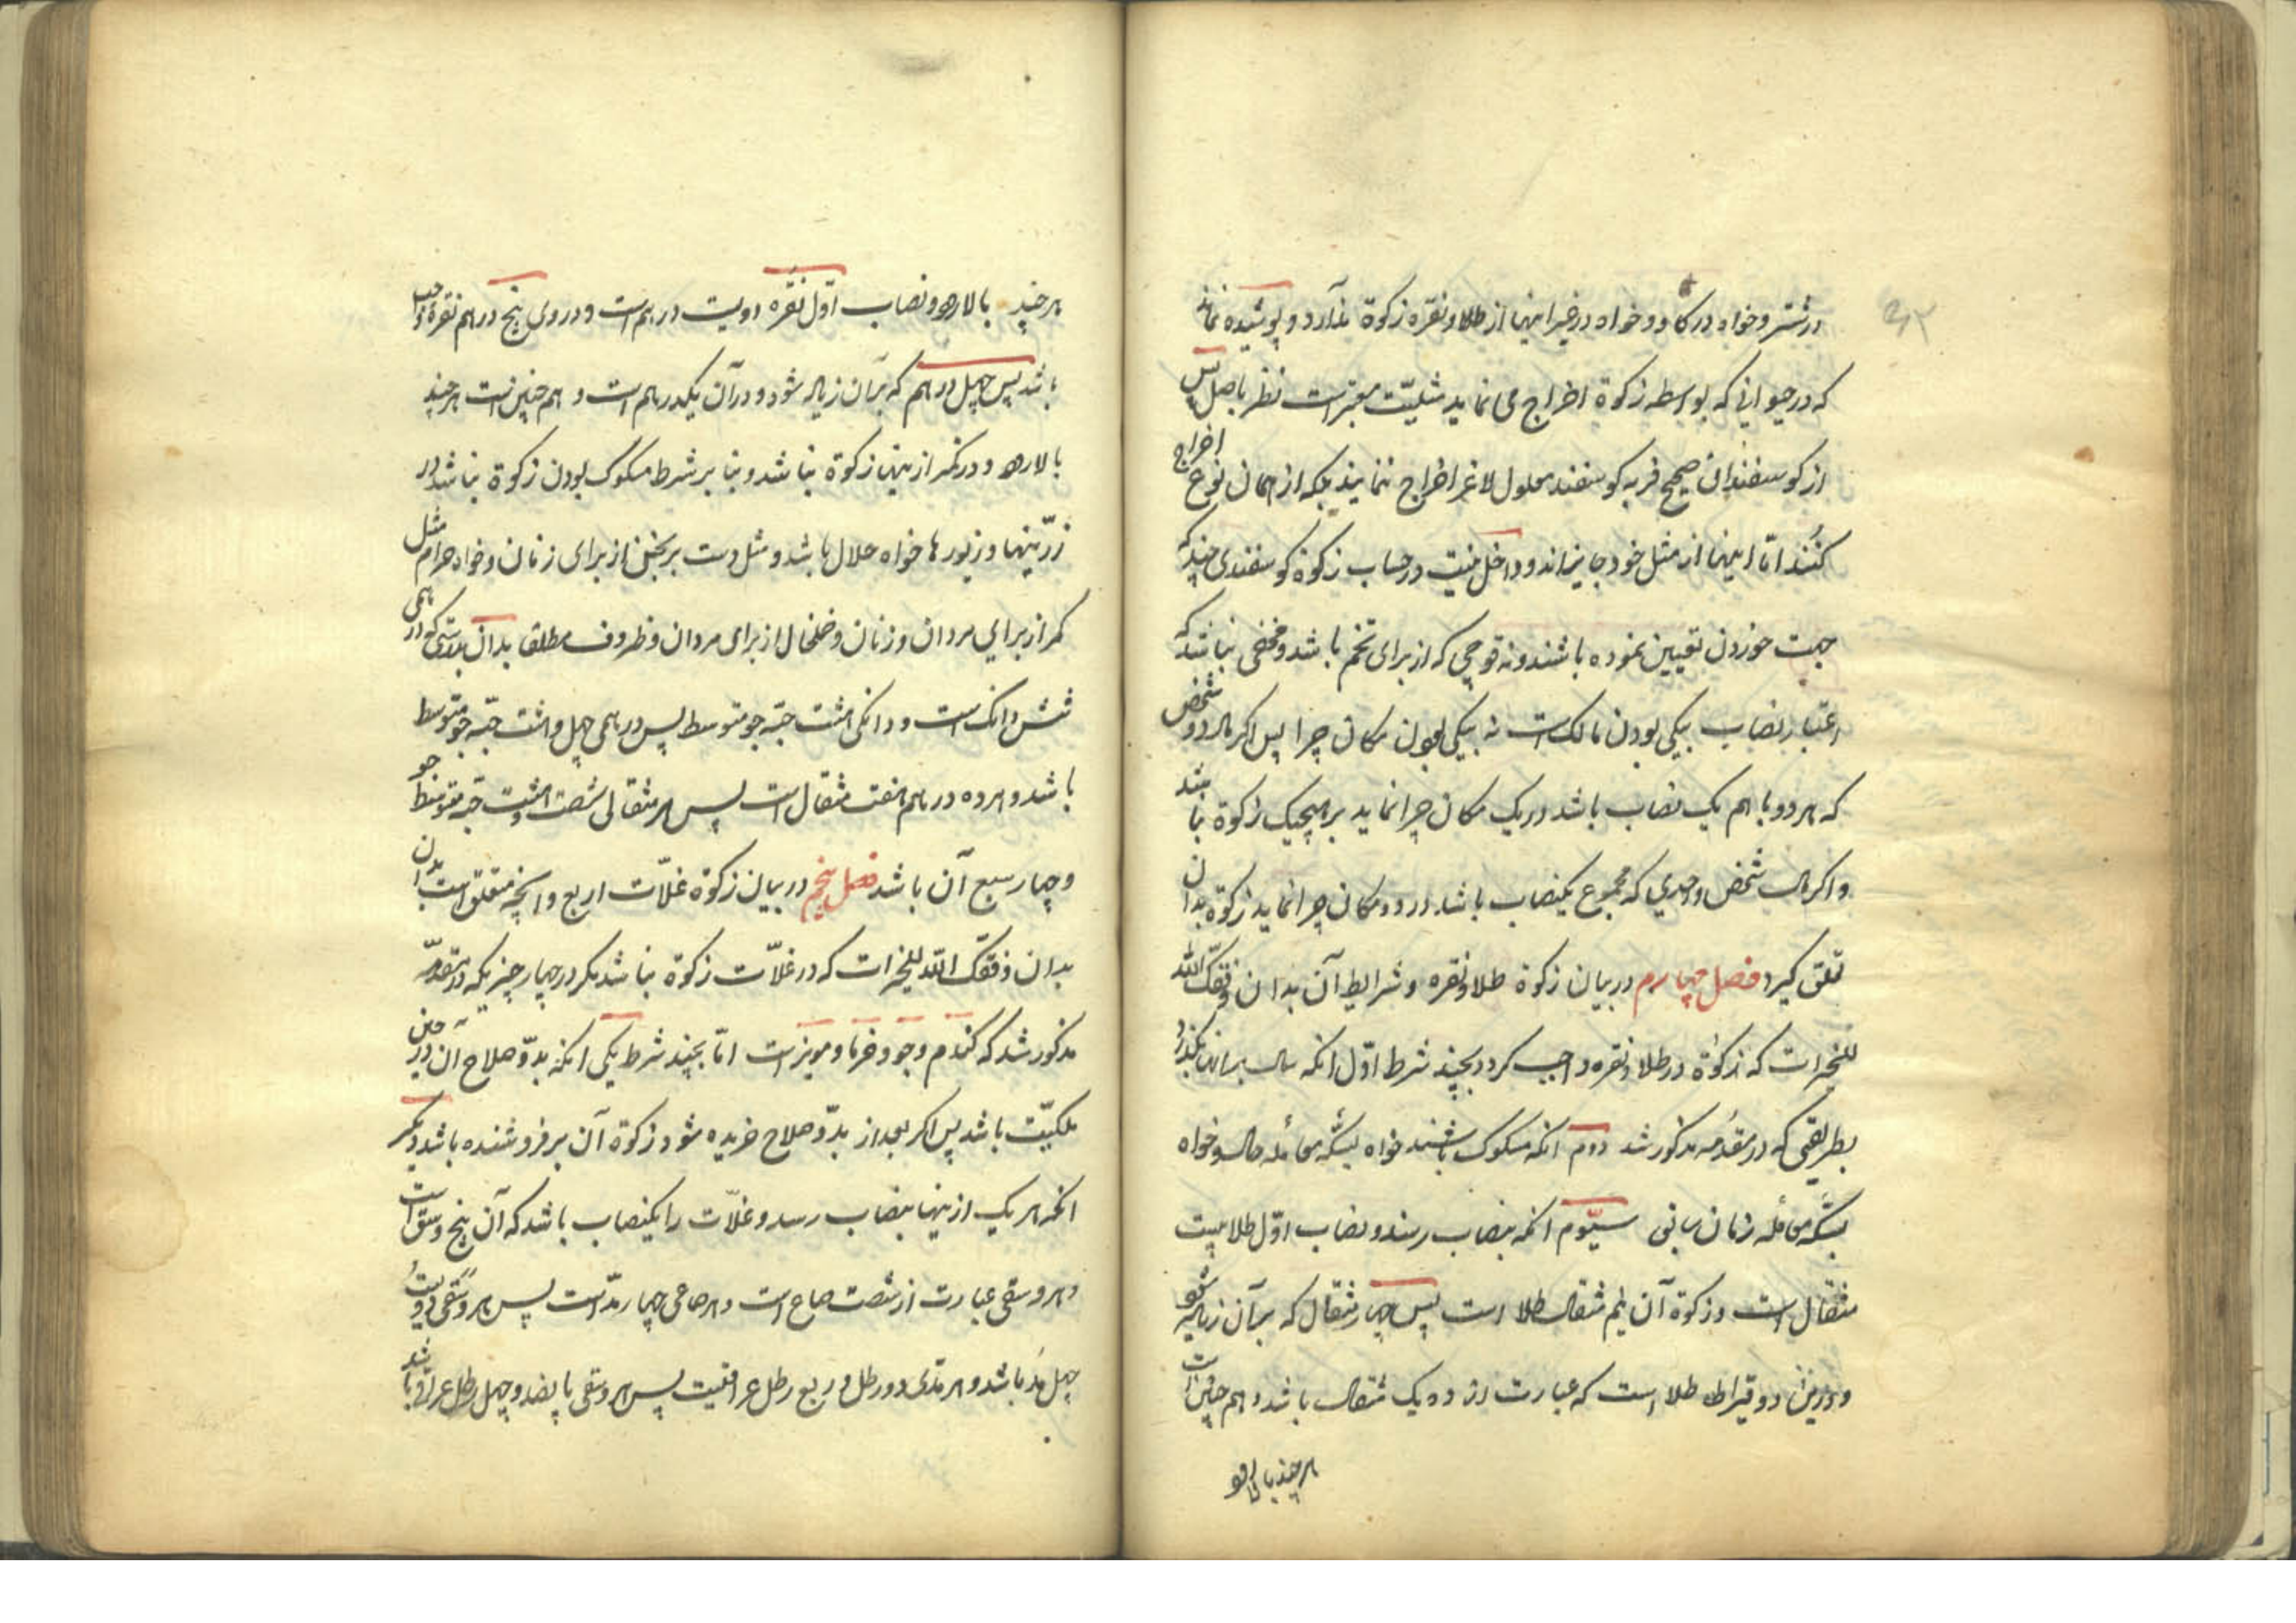 در شتر و خواه در گاو و خواه در غیر اینها از طلا و نقره زکوة ندارد و پوشیده نماند
که در حیوانی که بواسطه زکوة اخراج می نماید مثلیّت معتبر است نظر باصل پس
از کوسفندان صحیح فربه کوسفند معلول لاغر اخراج ننمایند بلکه از همان نوع اخراج
کنند امّا اینها از مثل خود جایزاند و داخل نیست در حساب زکوة کوسفندی چند که
جهت خوردن تعیین نموده باشند و نه قوچی که از برای تخم باشد و مخفی نباشد که
اعتبار نصاب بیکی بودن مالک است نه بیکی بودن مکان چرا پس اکر مال دو شخص
که هر دو با هم یک نصاب باشد در یک مکان چرا نماید بر هیچیک زکوة نباشد
و اکر مال شخص واحدی که مجموع یکنصاب باشد در دو مکان چرا نماید زکوة بدان
تعلق کیرد فصل چهارم در بیان زکوة طلا و نقره و شرایط آن بدان وفّقک الله
للخیرات که زکوة در طلا و نقره واجب کردد بچند شرط اوّل انکه سال بر انها بکذرد
بطریقی که در مقدّمه مذکور شد دوم انکه مسکوک باشند خواه بسکّه معامله حال و خواه
بسکّه معامله زمان سابق سیّوم انکه بنصاب رسند و نصاب اوّل طلا بیست
مثقال است و زکوة آن نیم مثقال طلا است پس چهار مثقال که بر آن زیاده شود
و در این دو قیراط طلا است که عبارت از ده یک مثقال باشد و هم چنین است
هر چند بالا رود
هر چند بالا رود و نصاب اوّل نقره دویست درهم است و در وی پنج درهم نقره واجب
باشد پس چهل درهم که بر آن زیاد شود و در آن یکدرهم است و هم چنین است هر چند
بالا رود و در کمتر از اینها زکوة نباشد و بنا بر شرط مسکوک بودن زکوة نباشد در
زرّینها و زیورها خواه حلال باشد و مثل دست برنجن از برای زنان و خواه حرام مثل
کمر از برای مردان و زنان و خلخال از برای مردان و ظروف مطلقا بدان بدرستی که درهمی
شش دانک است و دانکی هشت حبّه جو متوسط پس درهمی چهل و هشت حبّه جو متوسط
باشد و هر ده درهم هفت مثقال است پس هر مثقالی شصت و هشت حبّه جو متوسط
و چهار سبع آن باشد فصل پنجم در بیان زکوة غلّات اربع و انچه متعلق است بدان
بدان وفّقک الله للخیرات که در غلّات زکوة نباشد مکر در چهار چیز یکه در مقدّمه
مذکور شد که کندم و جو و خرما و مویز است امّا بچند شرط یکی انکه بدوّ صلاح آن در حین
ملکیّت باشد پس اکر بعد از بدوّ صلاح خریده شود زکوة آن بر فروشنده باشد دیکر
انکه هر یک از اینها بنصاب رسد و غلّات را یکنصاب باشد که آن پنج وسق است
و هر وسقی عبارت از شصت صاع است و هر صاعی چهار مدّ است پس هر وسقی دویست
چهل مد باشد و هر مدّی دو رطل و ربع رطل عراقیست پس هر وسقی پانصد و چهل رطل عراقی باشد